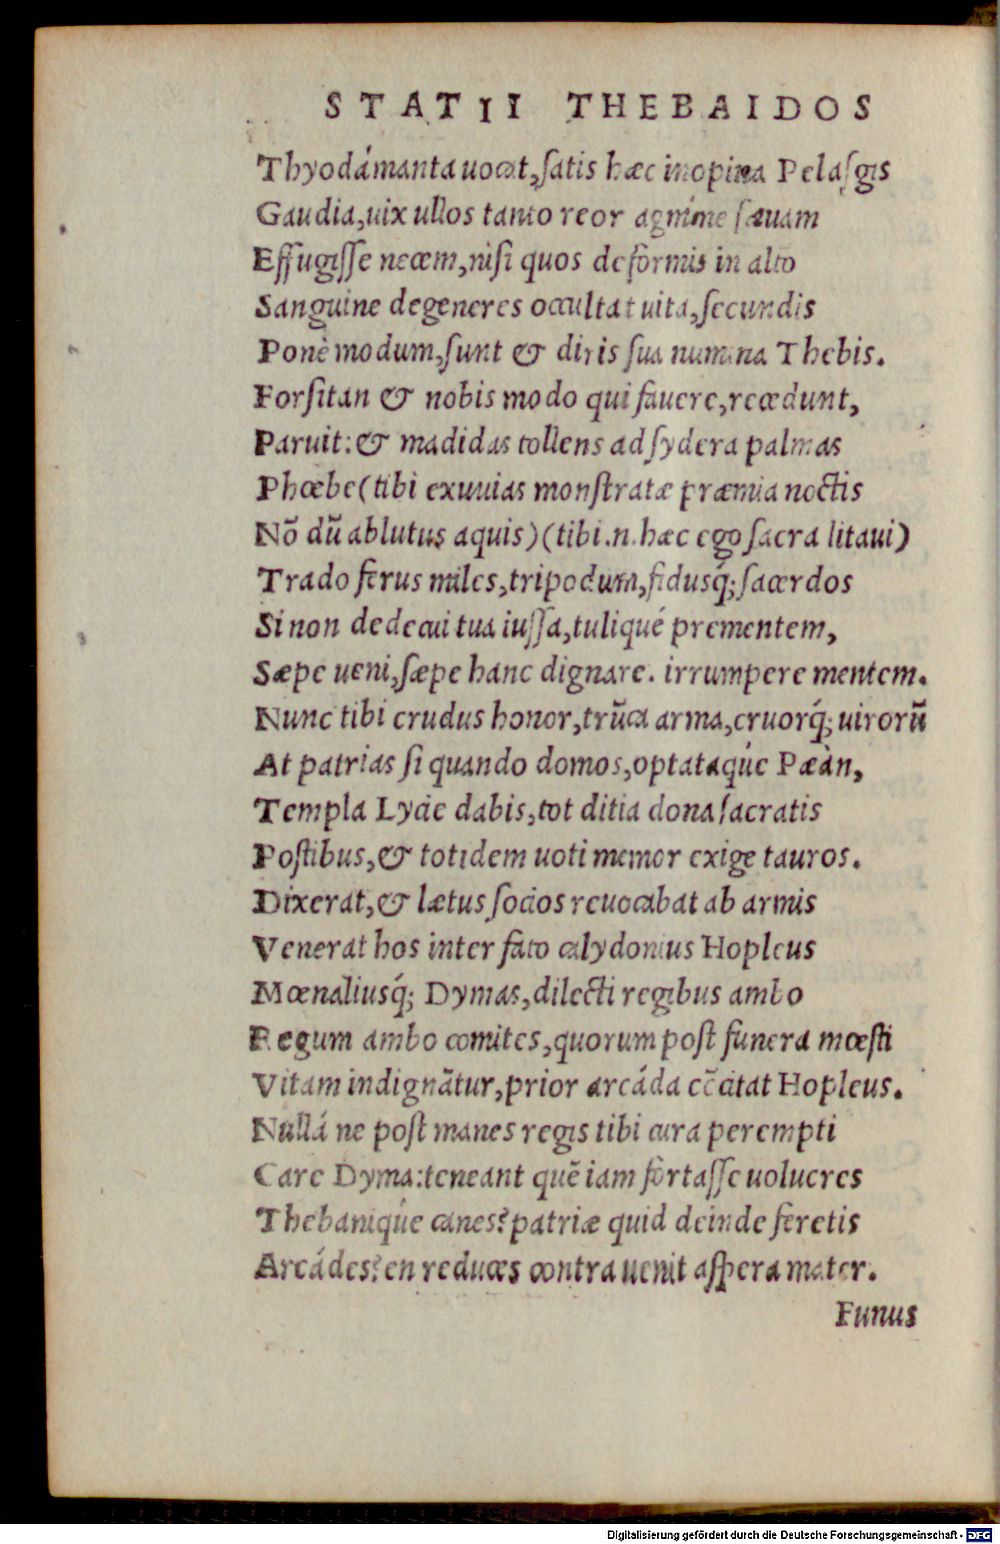 STATII THEBAIDOS
Thyodámanta uocat, ſatis hæc inopina Pelaſgis
Gaudia, uix ullos tanto reor agmíne ſæuam
Effugiſſe necem, niſi quos deformis in alto
Sanguine degeneres occultat uita, ſecundis
Ponè modum, ſunt & diris ſua numina Thebis.
Forſitan & nobis modo qui fauere, recedunt,
Paruit: & madidas tollens ad ſydera palmas
Phœbe (tibi exuuias monſtratæ præmia noctis
Nõ dũ ablutus aquis) (tibi .n. hæc ego ſacra litaui)
Trado ferus miles, tripodum, fidusq́; ſacerdos
Si non dedecui tua iuſſa, tuliqué prementem,
Sæpe ueni, ſæpe hanc dignare. irrumpere mentem.
Nunc tibi crudus honor, trũca arma, cruorq́; uirorũ
At patrias ſi quando domos, optataqúe Pæàn,
Templa Lycie dabis, tot ditia dona ſacratis
Poſtibus, & totidem uoti memor exige tauros.
Dixerat, & lætus ſocios reuocabat ab armis
Venerat hos inter fato calydonius Hopleus
Mœnaliusq́; Dymas, dilecti regibus ambo
Regum ambo comites, quorum poſt funera mœſti
Vitam indignãtur, prior arcáda cc̃citat Hopleus.
Nullá ne poſt manes regis tibi cura perempti
Care Dyma: teneant quẽ iam fortaſſe uolucres
Thebaniqúe canes? patriæ quid deinde feretis
Arcádes? en reduces contra uenit aſpera mater.
Funus
Digitalisierung gefördert durch die Deutsche Forschungsgemeinschaft - DFG